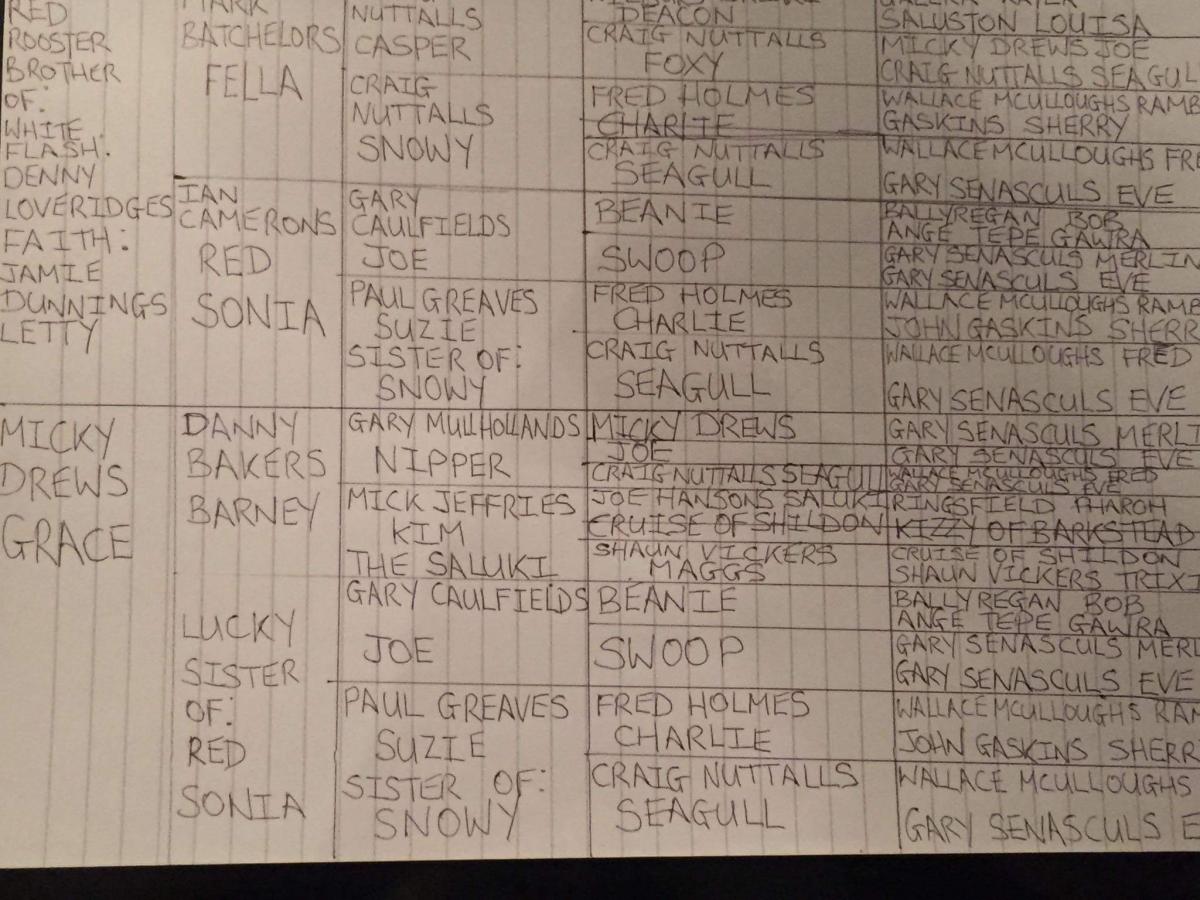 RED
ROOSTER
BROTHER
OF:
WHITE
FLASH:
DENNY
LOVERIDGES
FAITH:
JAMIE
DUNNINGS
LETTY
MICKY
DREWS
GRACE
MARK
BATCHELORS
FELLA
IAN
CAMERONS
RED
SONIA
DANNY
BAKERS
BARNEY
LUCKY
SISTER
OF:
RED
SONIA
NUTTALLS
CASPER
CRAIG
NUTTALLS
SNOWY
GARY
CAULFIELDS
JOE
PAUL GREAVES
SUZIE
SISTER OF:
SNOWY
GARY MULHOLLANDS
NIPPER
MICK JEFFRIES
KIM
THE SALUKI
GARY CAULFIELDS
JOE
PAUL GREAVES
SUZIE
SISTER OF:
SNOWY
DEACON
CRAIG NUTTALLS
FOXY
FRED HOLMES
CHARLIE
CRAIG NUTTALLS
SEAGULL
BEANIE
SWOOP
FRED HOLMES
CHARLIE
CRAIG NUTTALLS
SEAGULL
MICKY DREWS
JOE
CRAIG NUTTALLS SEAGULL
JOE HANSONS SALUKI
CRUISE OF SHILDON
SHAUN VICKERS
MAGGS
BEANIE
SWOOP
FRED HOLMES
CHARLIE
CRAIG NUTTALLS
SEAGULL
SALUSTON LOUISA
MICKY DREWS JOE
CRAIG NUTTALLS SEAGUL
WALLACE MCULLOUGHS RAMB
GASKINS SHERRY
WALLACE MCULLOUGHS FRE
GARY SENASCULS EVE
BALLYREGAN BOB
ANGE TEPE GAWRA
GARY SENASCULS MERLIN
GARY SENASCULS EVE
WALLACE MCULLOUGHS RAMB
JOHN GASKINS SHERR
WALLACE MCULLOUGHS FRED
GARY SENASCULS EVE
GARY SENASCULS MERLI
GARY SENASCULS EVE
WALLACE MCULLOUGHS FRED
GARY SENASCULS EVE
RINGSFIELD PHAROH
KIZZY OF BARKSTEAD
CRUISE OF SHILDON
SHAUN VICKERS TRIXI
BALLYREGAN BOB
ANGE TEPE GAWRA
GARY SENASCULS MERL
GARY SENASCULS EVE
WALLACE MCULLOUGHS RAM
JOHN GASKINS SHERRI
WALLACE MCULLOUGHS
GARY SENASCULS E